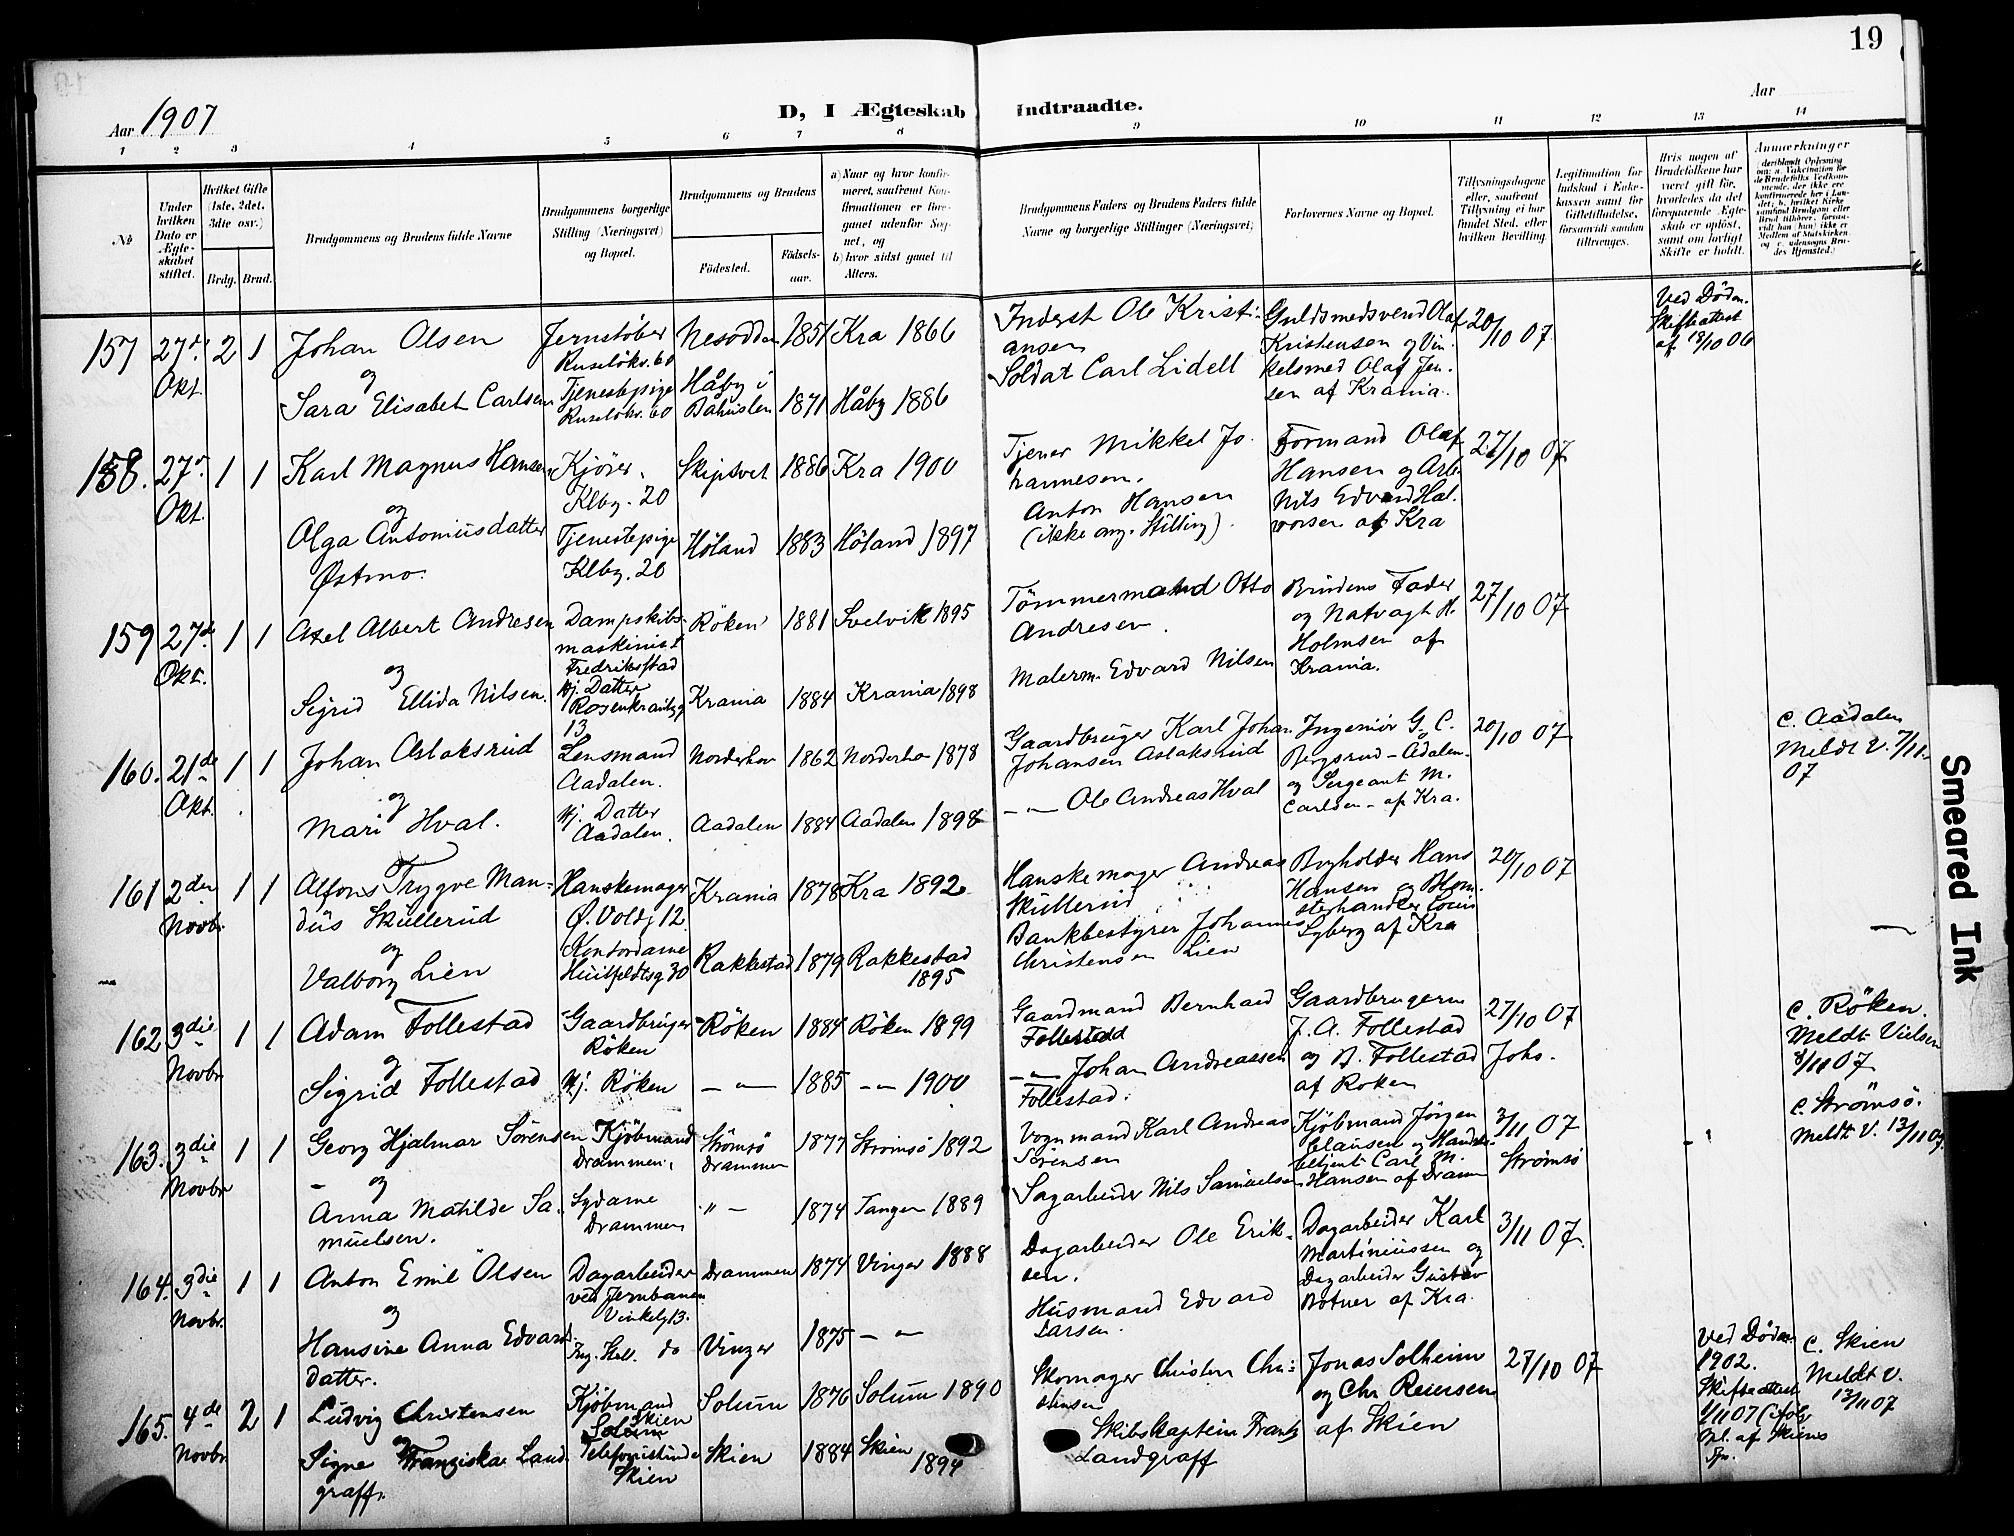 19
Aar 1907
D, I Ægteskab Indtraadte.
Aar
1 2 3 4 5 6 7 8 9 10 11 12 13 14
No
Under hvilken Dato er Ægteskabet stiftet.
Hvilket Gifte (1ste, 2det, 3die osv.)
Brdg. Brud.
Brudgommens og Brudens fulde Navne
Brudgommens borgerlige Stilling (Næringsvei) og Bopæl.
Brudgommens og Brudens
Födested.
Födselsaar.
a) Naar og hvor konfirmeret, saafremt Konfirmationen er foregaaet udenfor Sognet, og
b) hvor sidst gaaet til Alters.
Brudgommens Faders og Brudens Faders fulde Navne og borgerlige Stillinger (Næringsvei)
Forlovernes Navne og Bopæl.
Tillysningsdagene eller, saafremt Tillysning ei har fundet Sted, efter hvilken Bevilling.
Legitimation for Indskud i Enkekassen samt for Giftetilladelse, forsaavidt saadan tiltrænges.
Hvis nogen af Brudefolkene har været gift för, hvorledes da det foregaaende Ægteskab er oplöst, samt om lovligt Skifte er holdt.
Anmærkninger
157 27de Okt. 2 1
Johan Olsen
og
Sara Elisabet Carlsen
Jernstöber
Ruselökv. 60
Tjenestepige
Ruselökv. 60
Nesodden 1851 Kra 1866
Håby i
Bahuslen 1871 Håby 1886
Inderst Ole Kristi-
ansen
Soldat Carl Lidell
Guldsmedsvend Olaf
Kristensen og Vin-
kelsmed Olaf Jen-
sen af Krania.
20/10 07
Ved Döden.
Skifteattest
af 18/10 06
158. 27de Okt. 1 1
Karl Magnus Hansen
og
Olga Antoniusdatter
Østmo.
Kjörer
Klbg. 20
Tjenestepige
Klbg. 20
Skipsvet 1886 Kra 1900
Höland 1883 Höland 1897
Tjener Mikkel Jo-
hannesen.
Anton Hansen
(ikke ang. Stilling).
Formand Olaf
Hansen og Arb.
Nils Edvard Hal-
vorsen af Kra
27/10 07
159 27de Okt. 1 1
Axel Albert Andresen
og
Sigrid Ellida Nilsen.
Dampskibs-
maskinist
Fredriksstad
Hj. Datter
Rosenkrantzg
13
Röken 1881 Svelvik 1895
Krania 1884 Krania 1898
Tömmermand Otto
Andresen.
Malerm. Edvard Nilsen
Brudens Fader
og Natvagt H.
Holmsen af
Krania.
27/10 07
160. 21de Okt. 1 1
Johan Aslaksrud
og
Mari Hval.
Lensmand
Aadalen.
Hj. Datter
Aadalen.
Norderhov 1862 Norderho- 1878
Aadalen 1884 Aadalen 1898
Gaardbruger Karl Johan
Johansen Aslaksrud
— „ — Ole Andreas Hval
Ingeniör G. C.
Bergsrud - Ådalen
og Sergeant M.
Carlsen - af Kra.
20/10 07
C. Aadalen
Meldt V. 7/11
07
161 2den Novbr. 1 1
Alfons Trygve Man-
dius Skullerud
og
Valborg Lien
Hanskemager
Ø. Voldg 12
Kontordame
Huitfeldtsg 30
Krania 1878 Kra 1892
Rakkestad 1879 Rakkestad
1895
Hanskemager Andreas
Skullerud
Bankbestyrer Johannes
Christensen Lien
Hans
Hansen og Blom-
sterhandler Louis
Lyberg af Kra
20/10 07
162 3die Novbr 1 1
Adam Follestad
og
Sigrid Follestad
Gaardbruger
Röken
Hj. Röken
Röken 1884 Röken 1899
— „ — 1885 — „ — 1900
Gaardmand Bernhard
Follestad
— „ — Johan Andreassen
Follestad.
Gaardbrugerne
J. A. Follestad
og B. Follestad
af Roken
27/10 07
Johs.
C. Röken.
Meldt
8/11 07
163. 3die Novbr 1 1
Georg Hjalmar Sörensen
og
Anna Matilde Sa-
muelsen.
Kjöbmand
Drammen.
Sydame
Drammen
Strömsö
Drammen 1877 Strömsö 1892
„ — 1874 Tangen 1889
Vognmand Karl Andreas
Sörensen
Sagarbeider Nils Samuelsen
Kjöbmand Jörgen
Clausen og Handels-
betjent Carl M.
Hansen af Dramm
3/11 07
Strömsö
C. Strömsö.
Meldt V. 13/11 07.
164. 3die Novbr. 1 1
Anton Emil Olsen
og
Hansine Anna Edvards-
datter.
Dagarbeider
ved Jernbanen
Vinkelg 13.
do
Drammen 1874 Vinger 1888
Vinger 1875 — „ —
Dagarbeider Ole Erik-
sen.
Husmand Edvard
Larsen.
Dagarbeider Karl
Martiniussen og
Dagarbeider Gustav
Botner af Kra.
3/11 07.
165. 4de Novbr 2 1
Ludvig Christensen
og
Signe Franziska Land-
graff.
Kjöbmand
Skien
Telefonistinde
Skien
Solum 1876 Solum 1890
Skien 1884 Skien
1894
Skomager Christen Chri-
stensen
Skibskaptein Frantz
Landgraff
Jonas Solheim
og Chr Reiersen
af Skien
27/10 07
Ved Döden
1902.
Skifteattest
C. Skien
Meldt V.
13/11 07
Smeared Ink